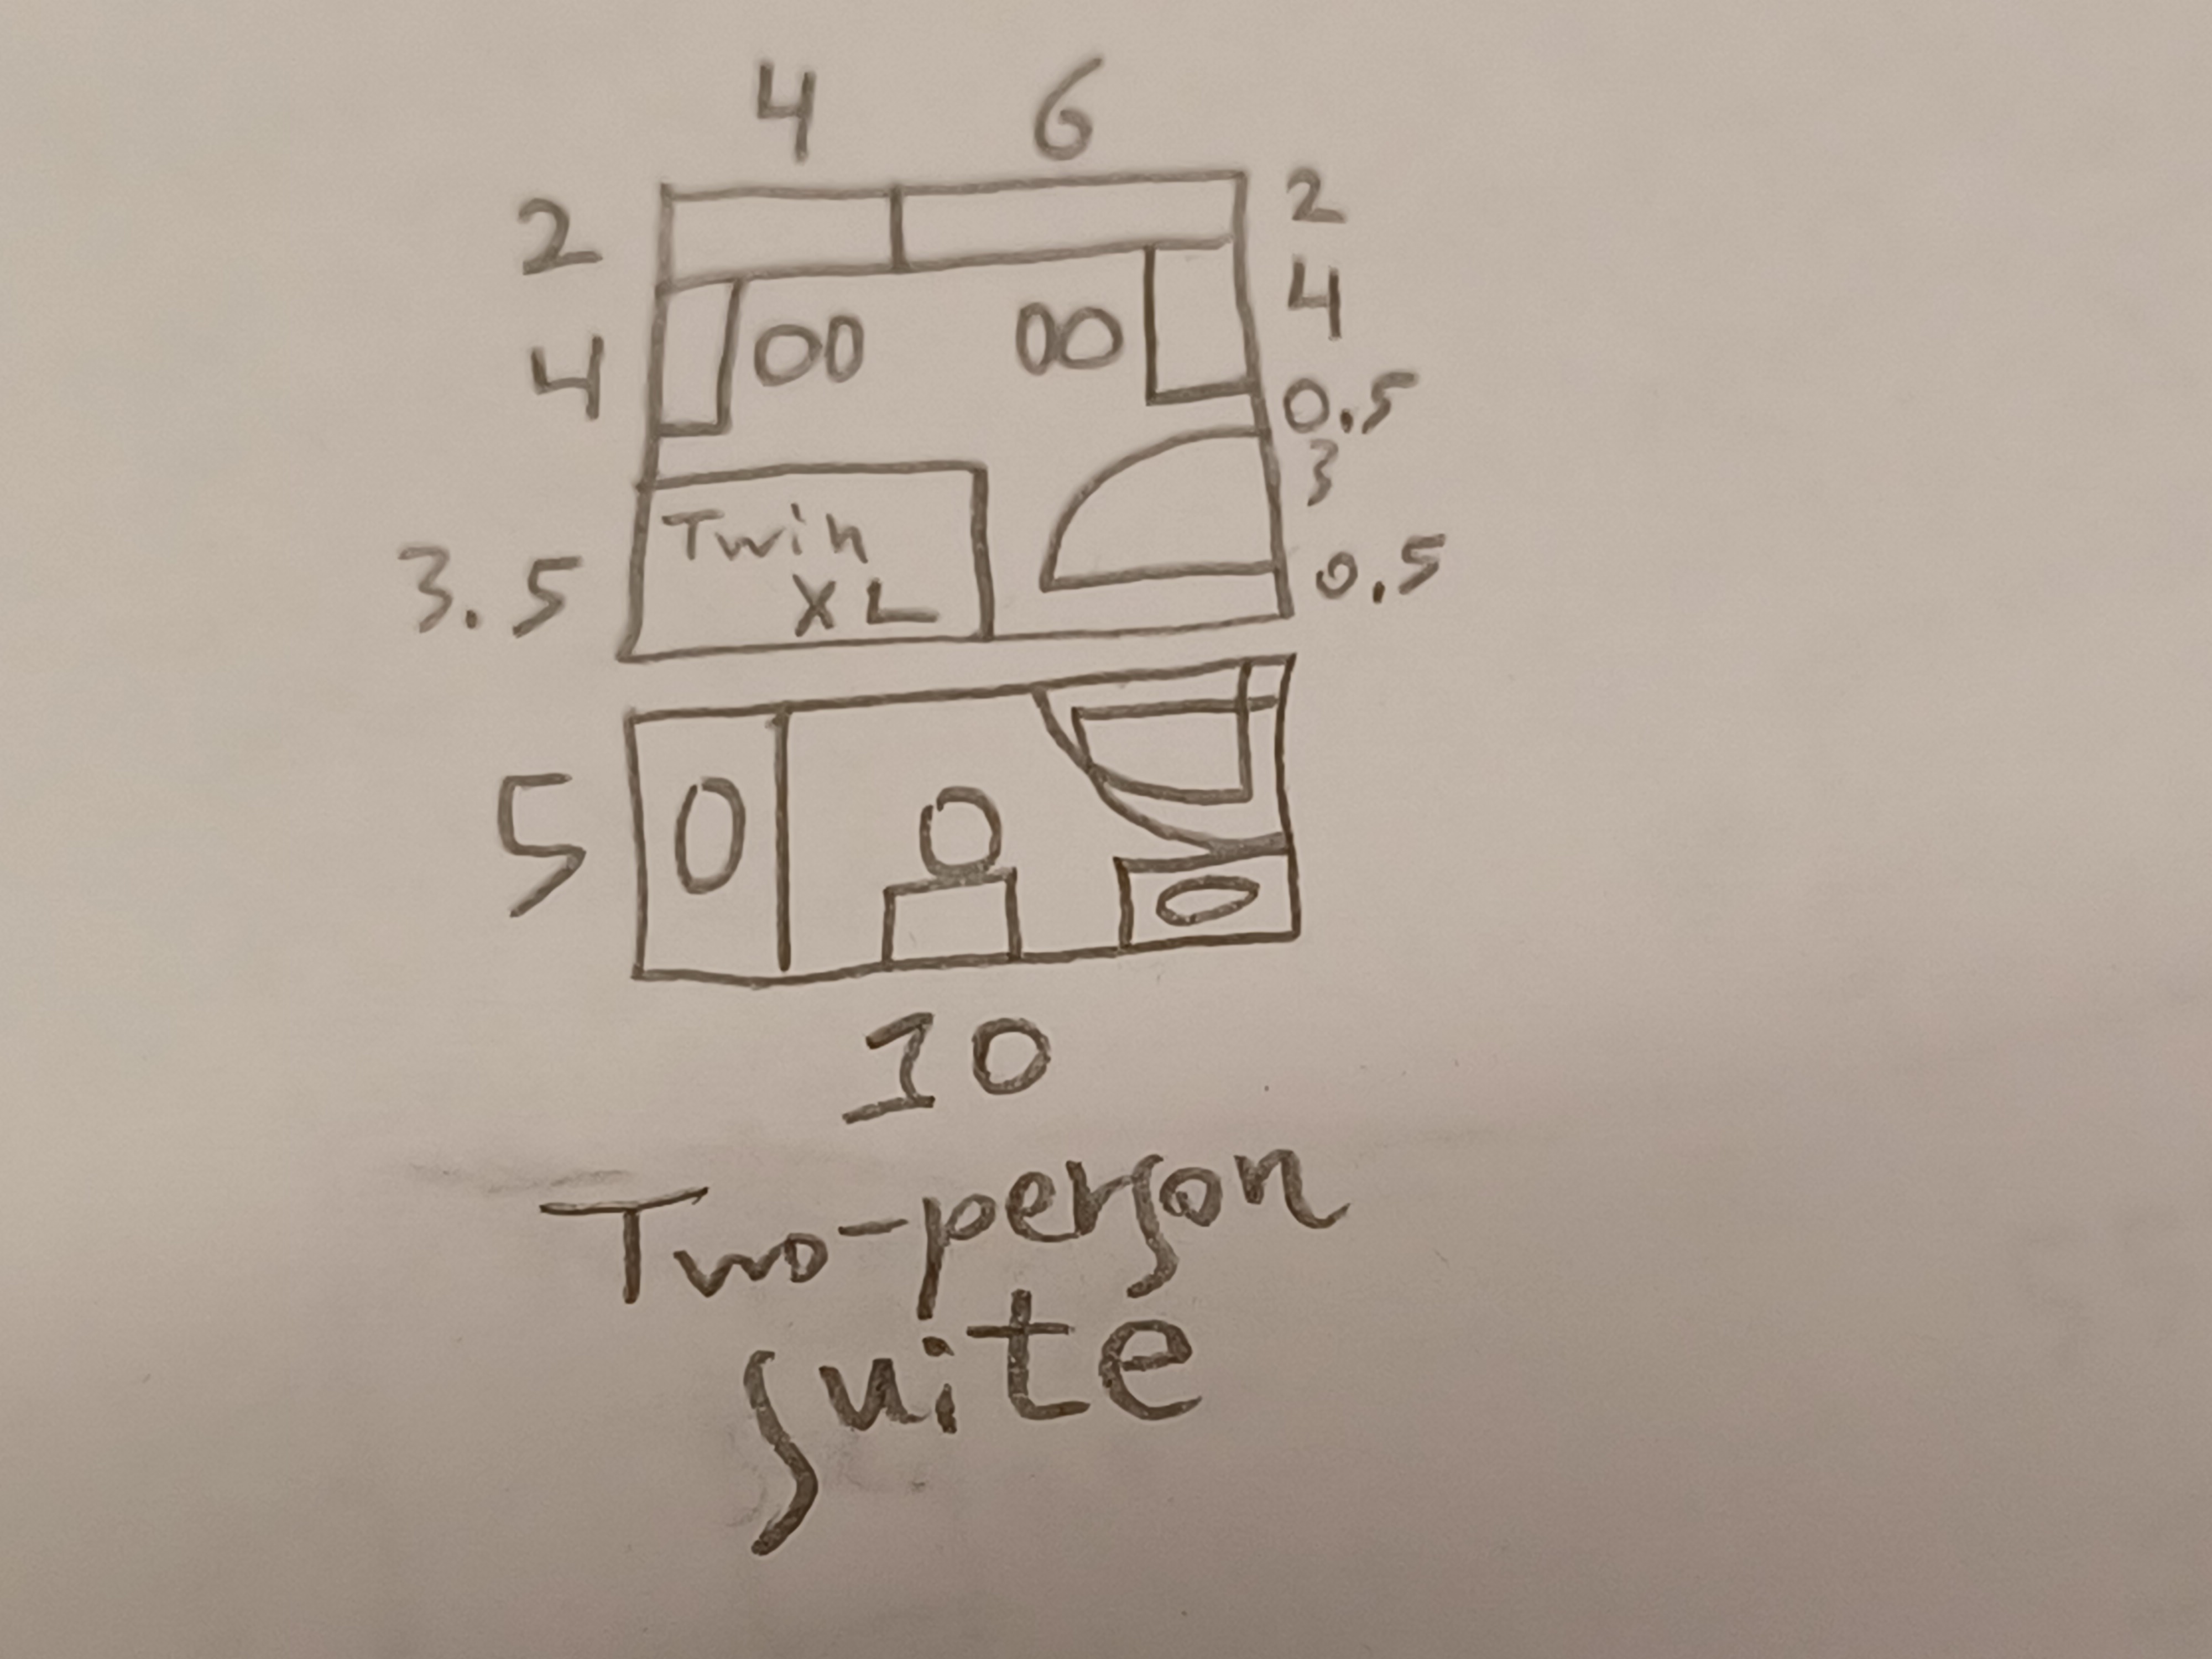 4 6
2 2
4 4
0.5
3
Twin
XL
3.5 0.5
5
10
Two-person
suite